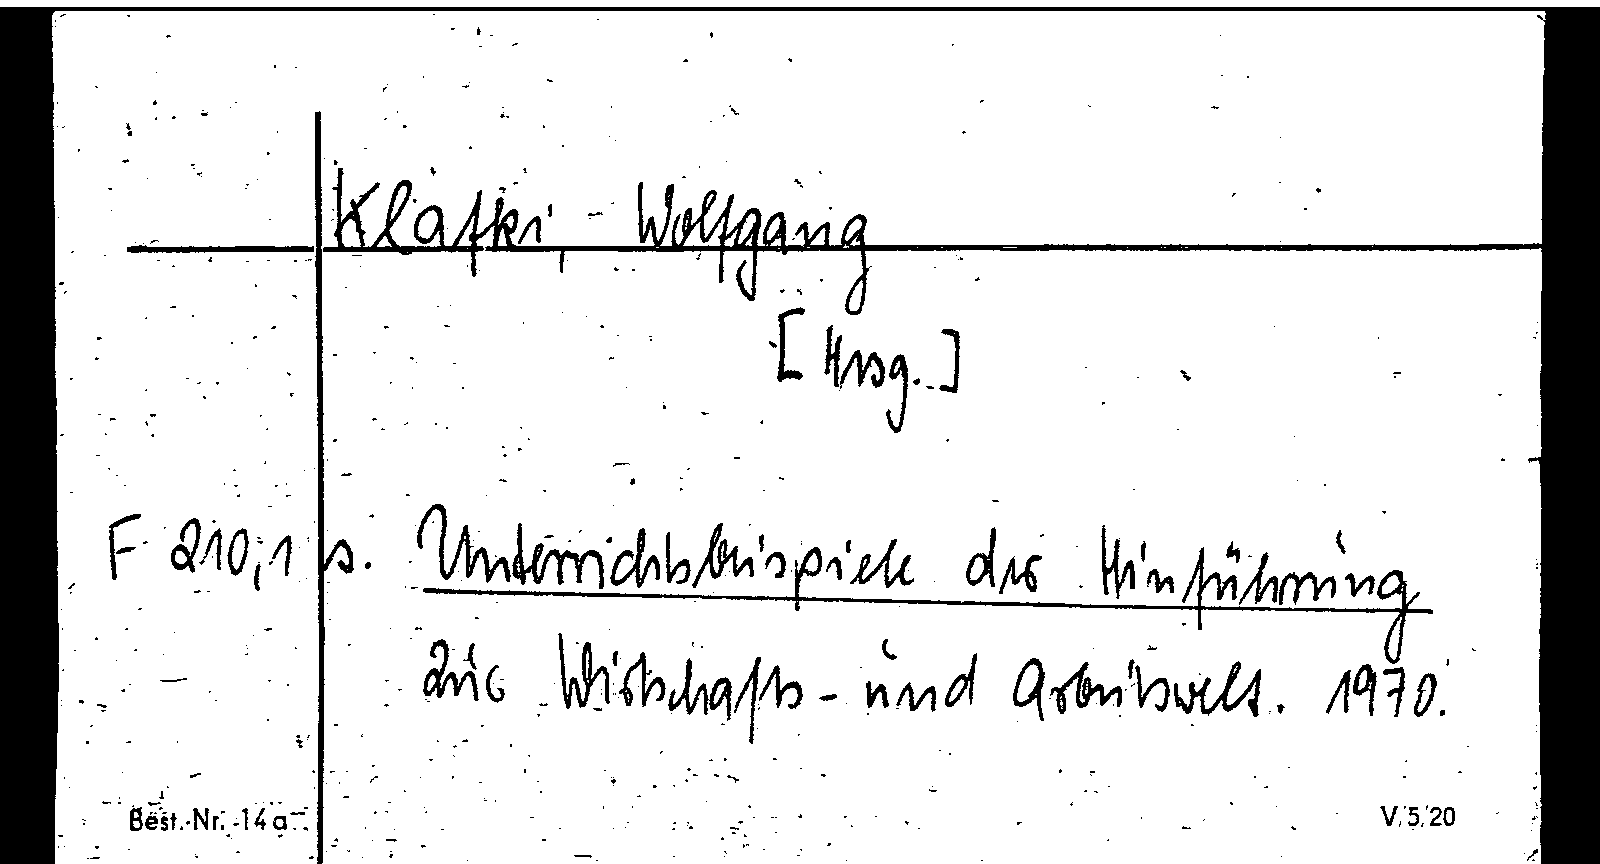 Klafki, Wolfgang
[Hrsg.]
F 210,1 s. Unterrichtsbeispiele der Hinführung
zur Wirtschafts- und Arbeitswelt. 1970.
Best.-Nr. 14a V/5/20